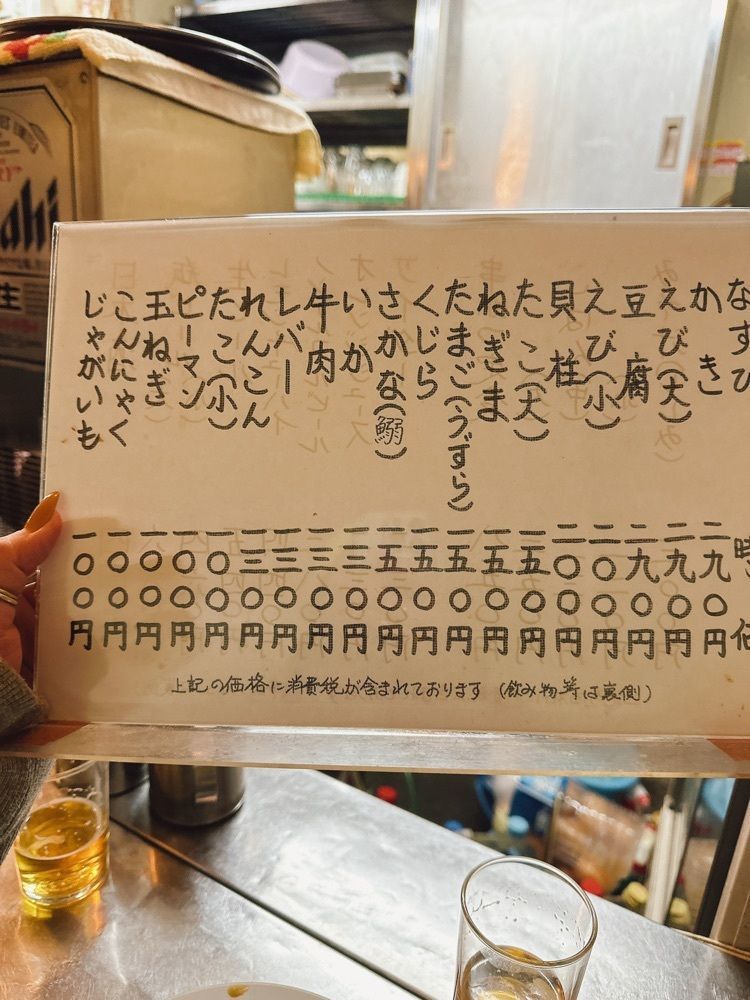 なすび 時価
かき 二九〇円
えび(大) 二九〇円
豆腐 二九〇円
えび(小) 二〇〇円
貝柱 二〇〇円
たこ(大) 一五〇円
ねぎま 一五〇円
たまご(うずら) 一五〇円
くじら 一五〇円
さかな(鰯) 一五〇円
いか 一三〇円
牛肉 一三〇円
レバー 一三〇円
れんこん 一三〇円
たこ(小) 一〇〇円
ピーマン 一〇〇円
玉ねぎ 一〇〇円
こんにゃく 一〇〇円
じゃがいも 一〇〇円
上記の価格に消費税が含まれております (飲み物等は裏側)
ahi
生